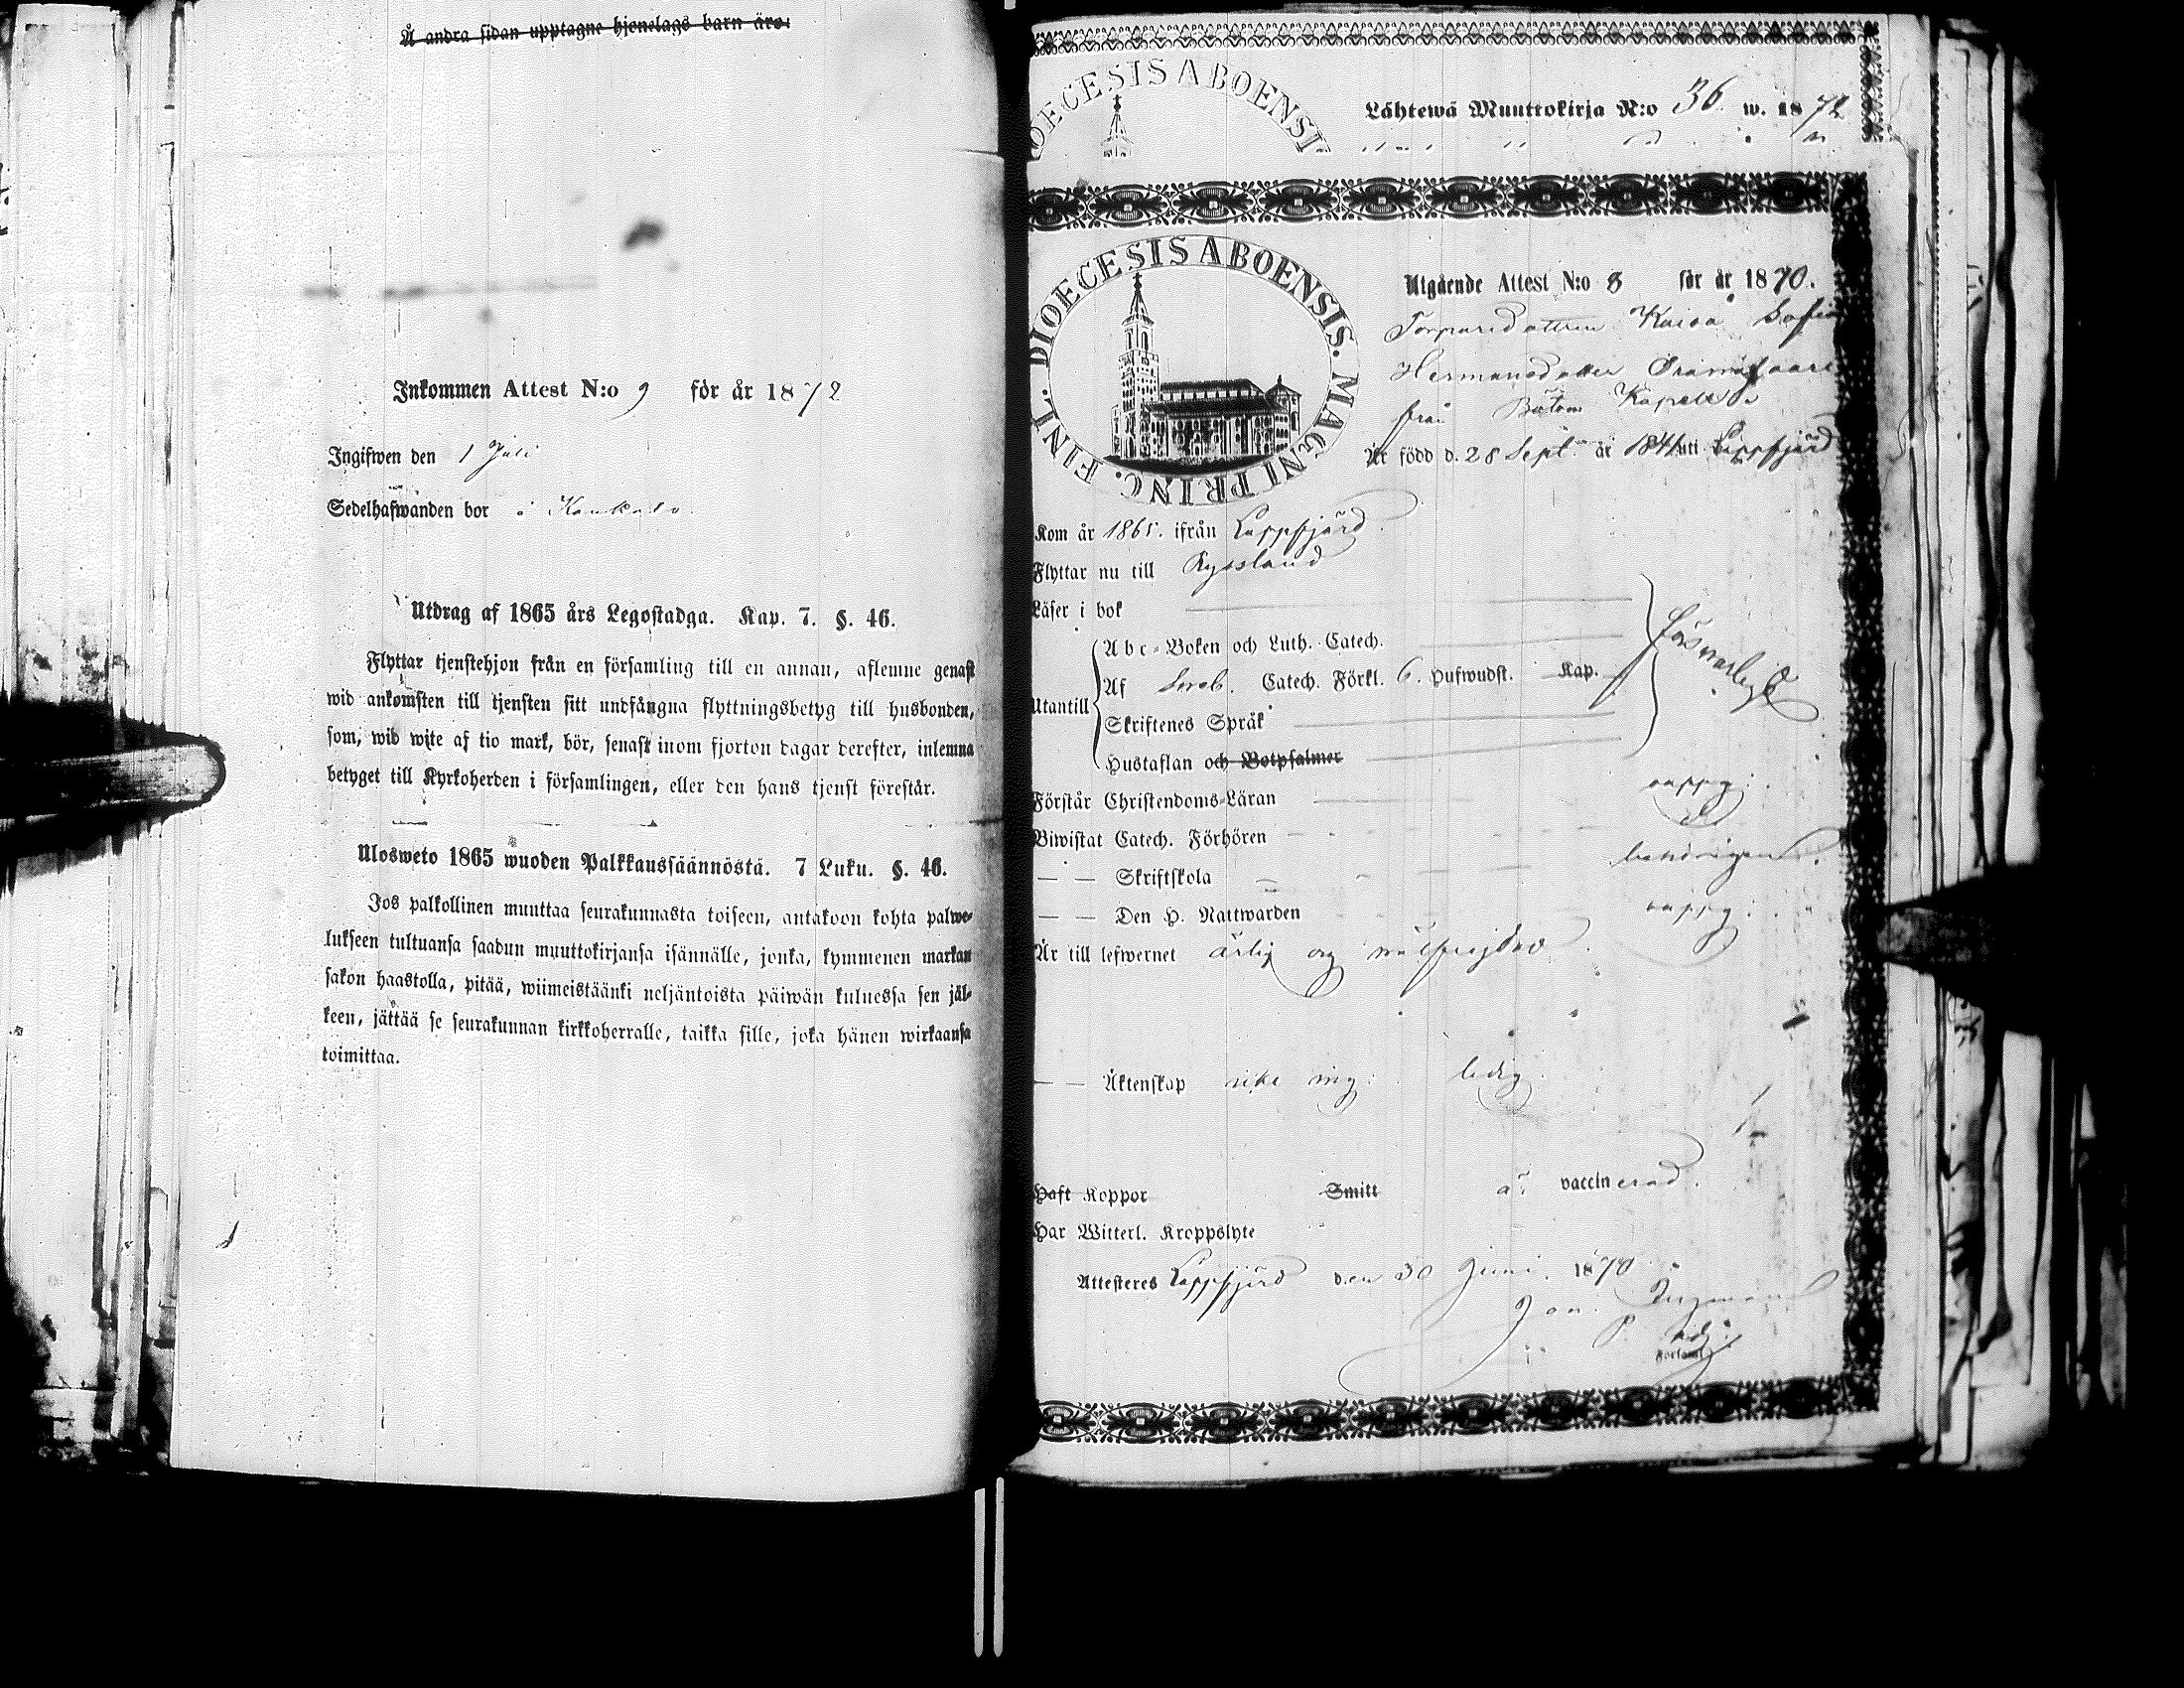 Å andra sidan upptagne hjonelags barn äro:
Inkommen Attest N:o 9 för år 1872
Ingifwen den 1 Juli
Sedelhafwanden bor å
Utdrag af 1865 års Legostadga. Kap. 7. §. 46.
Flyttar tjenstehjon från en församling till en annan, aflemne genast
wid ankomsten till tjensten sitt undfångna flyttningsbetyg till husbonden,
som, wid wite af tio mark, bör, senast inom fjorton dagar derefter, inlemna
betyget till Kyrkoherden i församlingen, eller den hans tjenst förestår.
Ulosweto 1865 wuoden Palkkaussäännöstä. 7 Luku. §. 46.
Jos palkollinen muuttaa seurakunnasta toiseen, antakoon kohta palwe-
lukseen tultuansa saadun muuttokirjansa isännälle, jonka, kymmenen markan
sakon haastolla, pitää, wiimeistäänki neljäntoista päiwän kuluessa sen jäl-
keen, jättää se seurakunnan kirkkoherralle, taikka sille, joka hänen wirkaansa
toimittaa.
DIOECESIS ABOENSIS
Lähtewä Muuttokirja N:o 36 w. 1872
DIOECESIS ABOENSIS. MAGNI PRINC. FINL.
Utgående Attest N:o 8 för år 1870.
Torparedottren Kaisa Sofia
Hermansdotter
från Bötom Kapell
Är född d. 28 Sept. år 1841 uti Lappfjärd
Kom år 1865. ifrån Lappfjärd
Flyttar nu till Ryssland
Läser i bok
försvarligt
Utantill
Abc-Boken och Luth. Catech.
Af Sveb. Catech. Förkl. 6. Hufwudst. Kap.
Skriftenes Språk
Hustaflan och Botpsalmer
Förstår Christendoms-Läran
Biwistat Catech. Förhören
— — Skriftskola
— — Den H. Nattwarden
Är till lefwernet ärlig och välfrejdad
— — Äktenskap ledig
Haft Koppor Smitt är vaccinerad.
Har Witterl. Kroppslyte
Attesteres Lappfjärd den 30 Juni. 1870